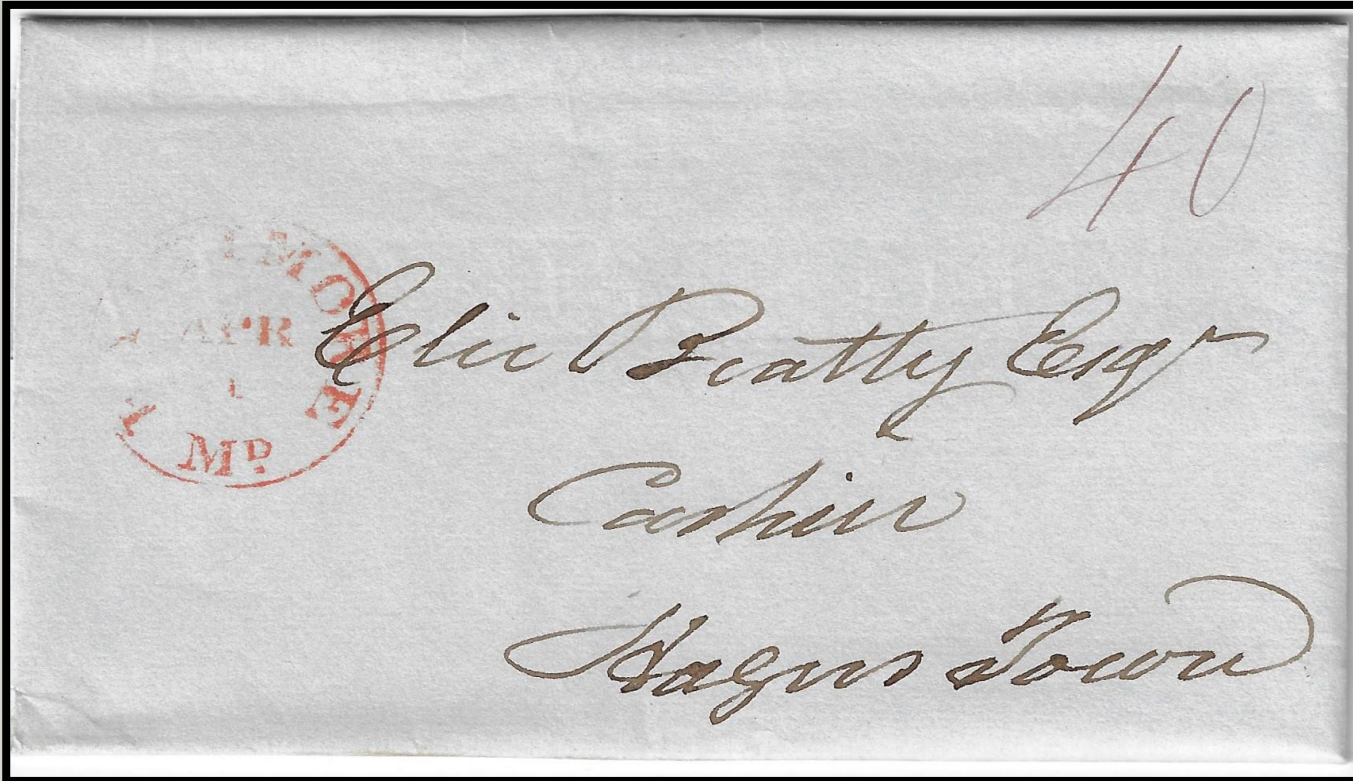 40
APR
1
MD
Elie Beatty Esqr
Cashier
Hagers Town